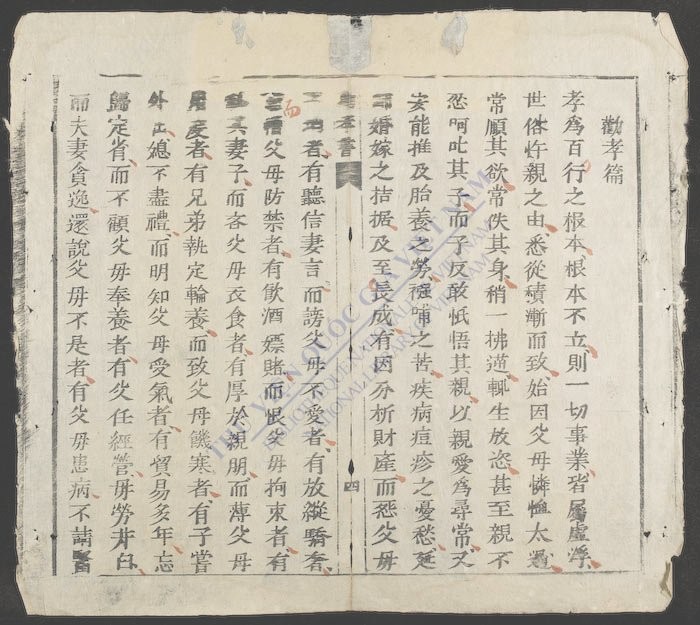 勸孝篇
孝爲百行之根本根本不立則一切事業皆屬虛浮
世俗忤親之由悉從積漸而致始因父母憐恤太過
常順其欲常佚其身稍一拂逆輒生放恣甚至親不
忍呵叱其子而子反敢怟悟其親以親愛爲尋常又
安能推及胎養之勞襁哺之苦疾病痘疹之憂愁延
師婚嫁之拮据及至長成有因分析財產而怨父母
孝書 四
者有聽信妻言而謗父母不愛者有放縱驕奢
而
父母防禁者有飲酒嫖賭而恨父母拘束者有
其妻子而吝父母衣食者有厚於親朋而薄父母
度者有兄弟執定輪養而致父母饑寒者有子嘗
外出總不盡禮而明知父母受氣者有貿易多年忘
歸定省而不顧父母奉養者有父任經營母勞井臼
而夫妻貪逸還說父母不是者有父母患病不請醫
THƯ VIỆN QUỐC GIA VIỆT NAM
BIBLIOTHÈQUE NATIONALE DU VIETNAM
NATIONAL LIBRARY OF VIETNAM